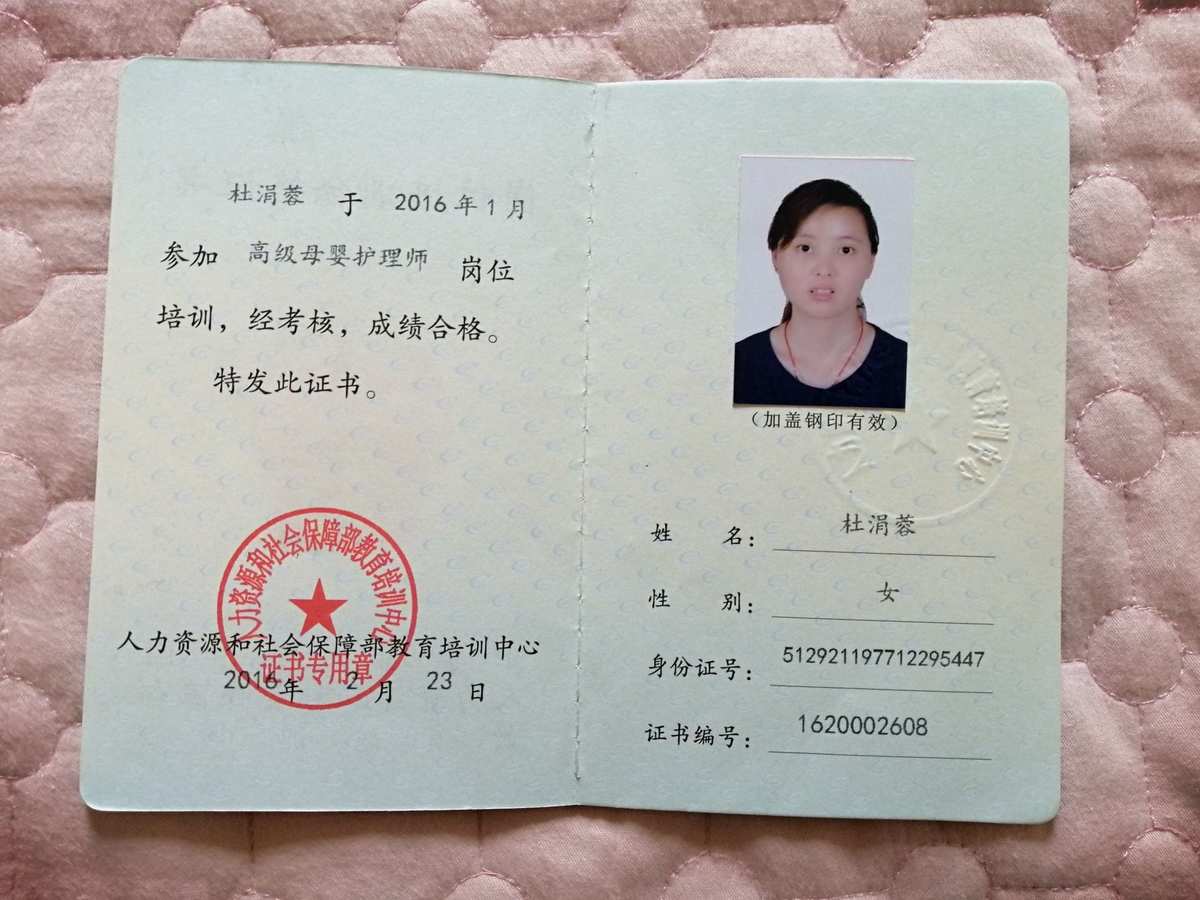 杜涓蓉 于 2016年1月
参加 高级母婴护理师 岗位
培训，经考核，成绩合格。
特发此证书。
人力资源和社会保障部教育培训中心
证书专用章
人力资源和社会保障部教育培训中心
2016年 2月 23日
（加盖钢印有效）
姓 名： 杜涓蓉
性 别： 女
身份证号： 512921197712295447
证书编号： 1620002608